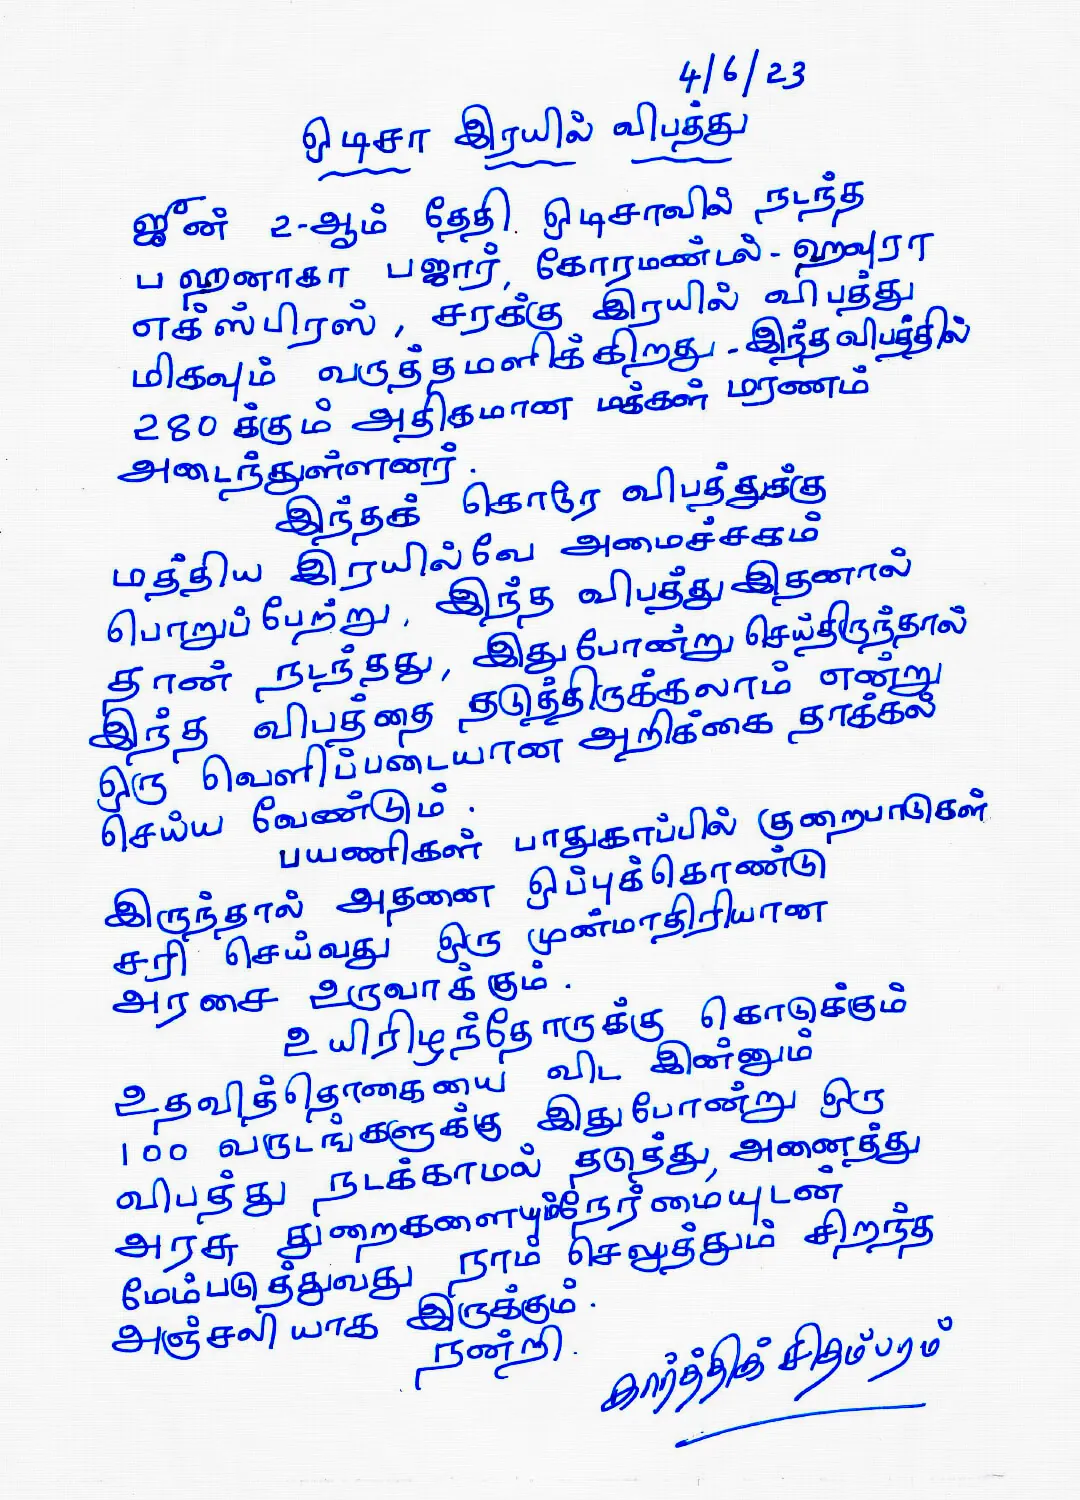 4/6/23
ஒடிசா இரயில் விபத்து
ஜூன் 2-ஆம் தேதி ஒடிசாவில் நடந்த
பஹனாகா பஜார், கோரமண்டல் - ஹவுரா
எக்ஸ்பிரஸ், சரக்கு இரயில் விபத்து
மிகவும் வருத்தமளிக்கிறது. இந்த விபத்தில்
280 க்கும் அதிகமான மக்கள் மரணம்
அடைந்துள்ளனர்.
இந்தக் கொரே விபத்துக்கு
மத்திய இரயில்வே அமைச்சகம்
பொறுப்பேற்று, இந்த விபத்து இதனால்
தான் நடந்தது, இதுபோன்று செய்திருந்தால்
இந்த விபத்தை தடுத்திருக்கலாம் என்று
ஒரு வெளிப்படையான அறிக்கை தாக்கல்
செய்ய வேண்டும்.
பயணிகள் பாதுகாப்பில் குறைபாடுகள்
இருந்தால் அதனை ஒப்புக்கொண்டு
சரி செய்வது ஒரு முன்மாதிரியான
அரசை உருவாக்கும்.
உயிரிழந்தோருக்கு கொடுக்கும்
உதவித்தொகையை விட இன்னும்
100 வருடங்களுக்கு இதுபோன்று ஒரு
விபத்து நடக்காமல் தடுத்து, அனைத்து
அரசு துறைகளையும் நேர்மையுடன்
மேம்படுத்துவது நாம் செலுத்தும் சிறந்த
அஞ்சலியாக இருக்கும்.
நன்றி.
கார்த்திக் சிதம்பரம்